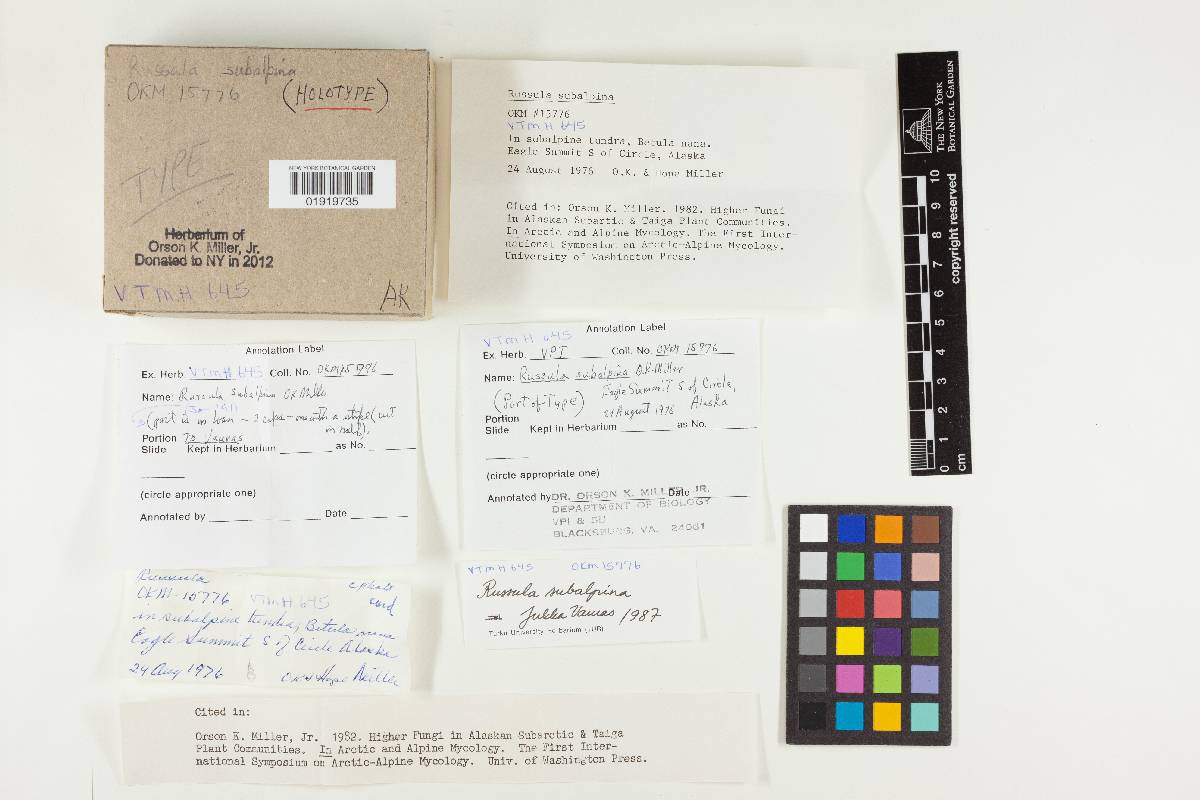 Russula subalpina
OKM 15776
(HOLOTYPE)
TYPE
NEW YORK BOTANICAL GARDEN
01919735
Herbarium of
Orson K. Miller, Jr.
Donated to NY in 2012
VTMH 645
AK
Russula subalpina
OKM #15776
VTMH 645
In subalpine tundra, Betula nana.
Eagle Summit S of Circle, Alaska
24 August 1976 O.K. & Hope Miller
Cited in: Orson K. Miller. 1982. Higher Fungi
in Alaskan Subartic & Taiga Plant Communities.
In Arctic and Alpine Mycology. The First Inter-
national Symposium on Arctic-Alpine Mycology.
University of Washington Press.
THE NEW YORK
BOTANICAL GARDEN
copyright reserved
0 1 2 3 4 5 6 7 8 9 10
cm
Annotation Label
Ex. Herb. VTMH 645 Coll. No. OKM 15776
Name: Russula subalpina OK Miller
(part is in loan – 2 caps – one with a stipe (cut
in half)
Portion To Vauras
Slide Kept in Herbarium as No.
(circle appropriate one)
Annotated by Date
VTMH 645 Annotation Label
Ex. Herb. VPI Coll. No. OKM 15776
Name: Russula subalpina O.K. Miller
(Part of Type) Eagle Summit S of Circle,
24 August 1976 Alaska
Portion
Slide Kept in Herbarium as No.
(circle appropriate one)
Annotated by DR. ORSON K. MILLER, JR. Date
DEPARTMENT OF BIOLOGY
VPI & SU
BLACKSBURG, VA. 24061
Russula
OKM-15776 VTMH 645 card
in subalpine tundra, Betula nana
Eagle Summit S of Circle Alaska
24 Aug 1976 OK & Hope Miller
VTMH 645 OKM 15776
Russula subalpina
Jukka Vauras 1987
Turku University Herbarium (TUR)
Cited in:
Orson K. Miller, Jr. 1982. Higher Fungi in Alaskan Subarctic & Taiga
Plant Communities. In Arctic and Alpine Mycology. The First Inter-
national Symposium on Arctic-Alpine Mycology. Univ. of Washington Press.